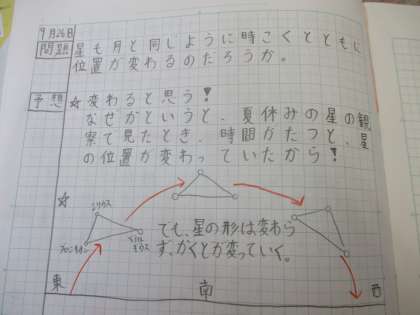 9月26日
問題
星も月と同じように時こくとともに
位置が変わるのだろうか。
予想
☆変わると思う!
なぜかというと、夏休みの星の観
察で見たとき、時間がたつと、星
の位置が変わっていたから!
☆
シリウス
プロキオン
でも、星の形は変わら
ず、かくどが変っていく。
東
南
西